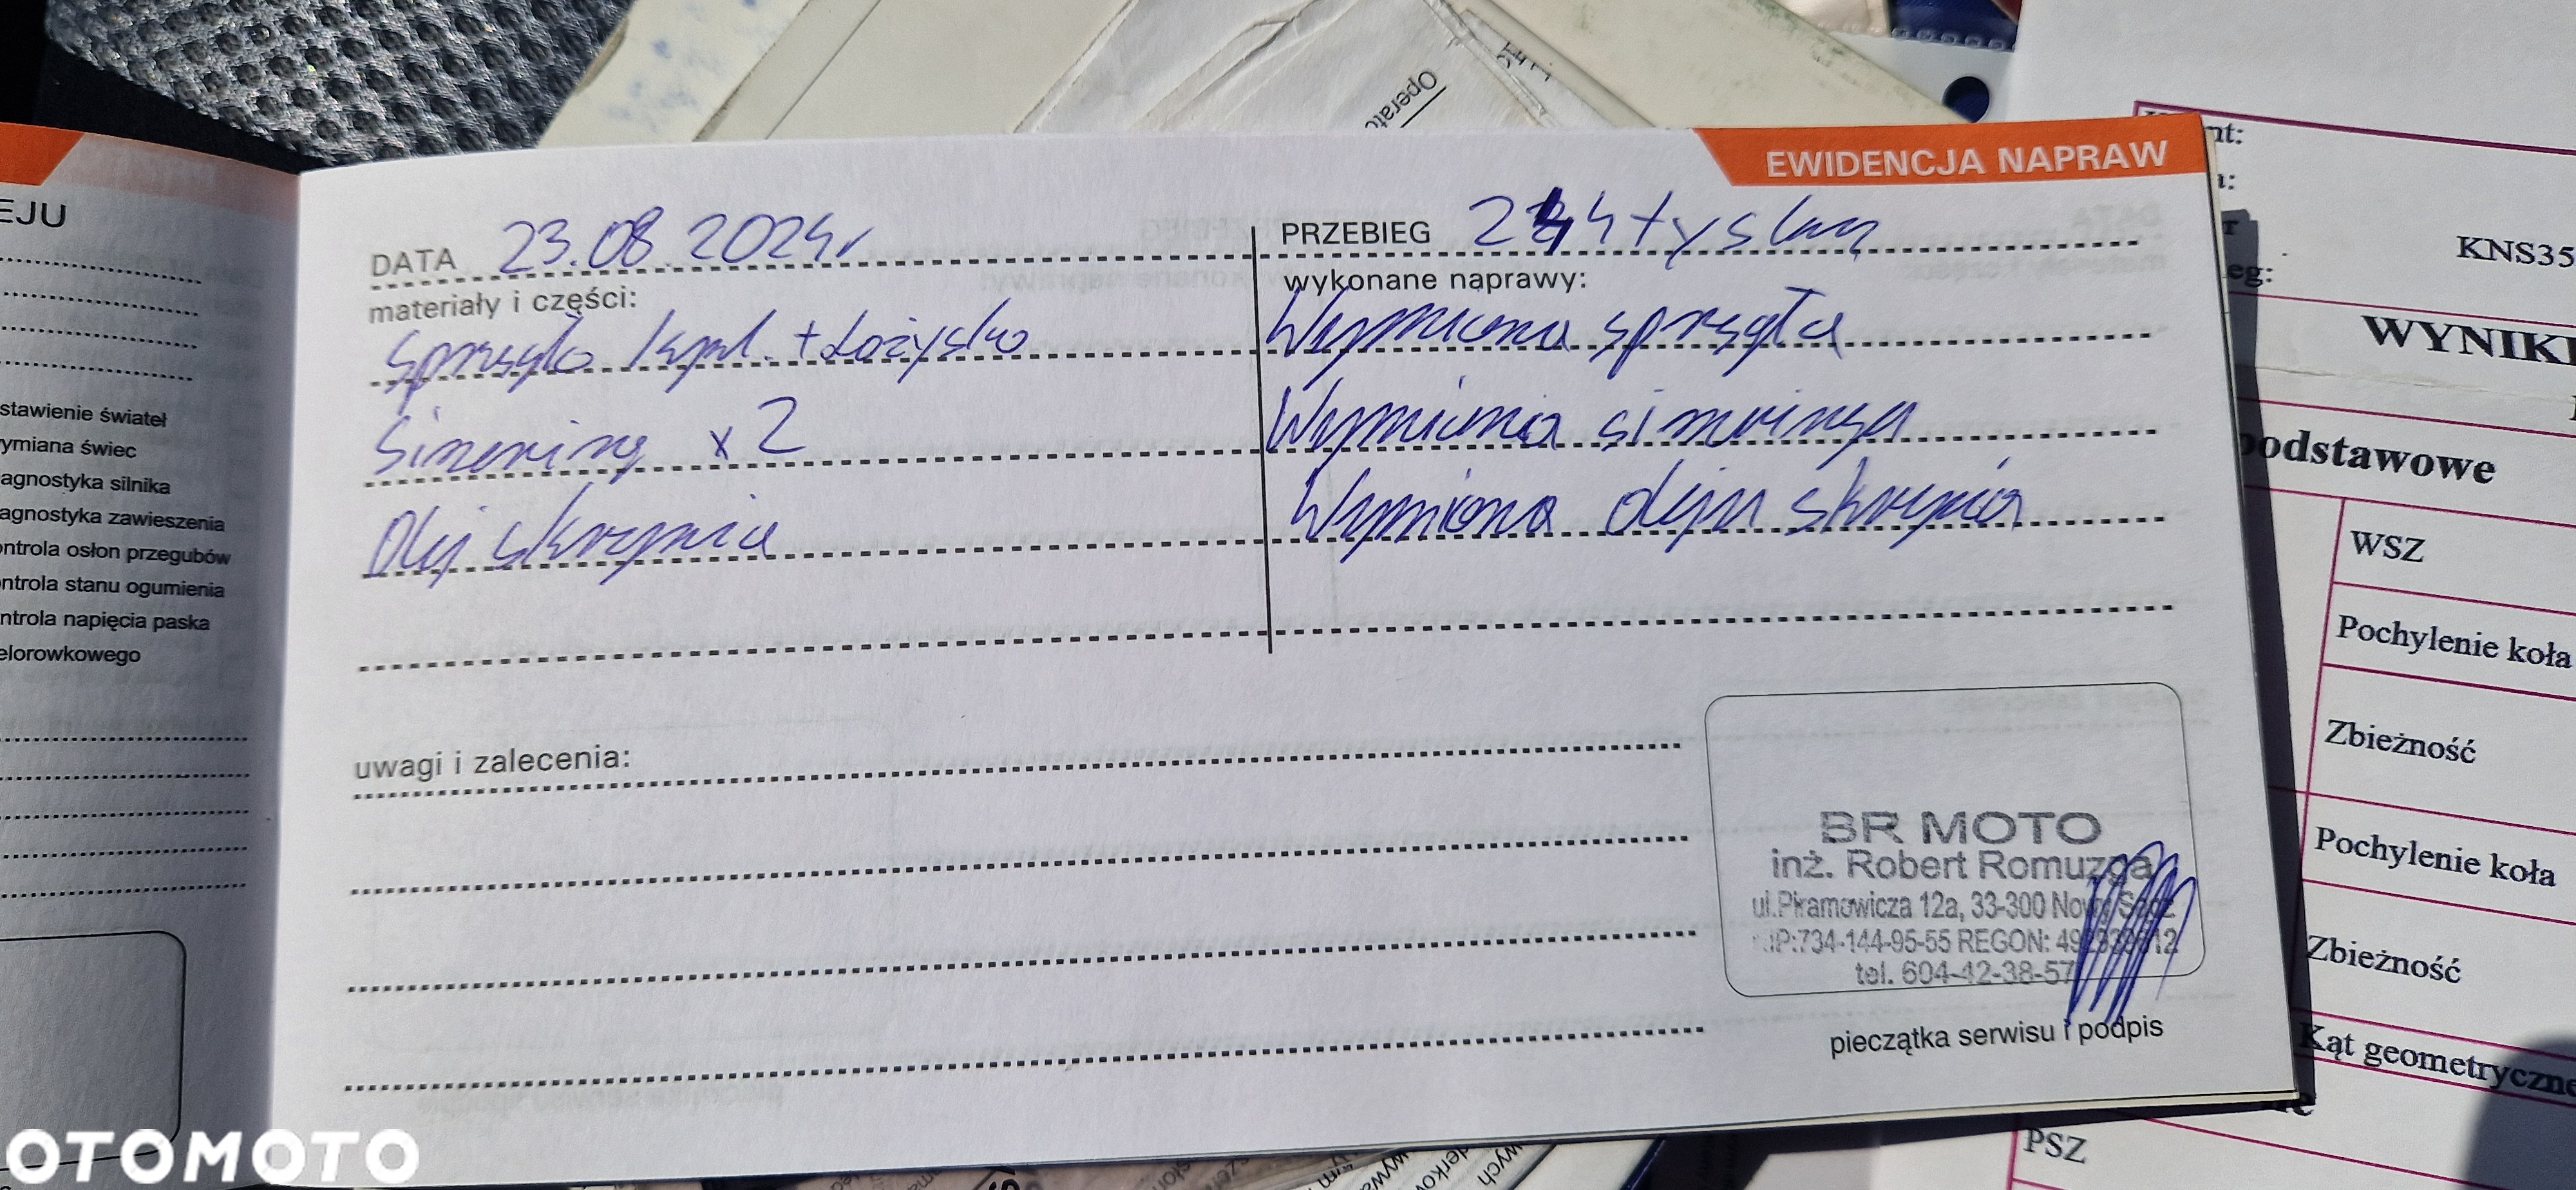 Operato
EWIDENCJA NAPRAW
EJU
DATA 23.08.2024r
PRZEBIEG 244 tys km
materiały i części:
wykonane naprawy:
Sprzęgło kpl. + Łożysko
Wymiana sprzęgła
Simering x 2
Wymiana simeringa
Olej skrzynia
Wymiana oleju skrzynia
stawienie świateł
ymiana świec
agnostyka silnika
agnostyka zawieszenia
ontrola osłon przegubów
ontrola stanu ogumienia
ontrola napięcia paska
elorowkowego
uwagi i zalecenia:
BR MOTO
inż. Robert Romuzga
ul.Piramowicza 12a, 33-300 Nowy Sącz
NIP:734-144-95-55 REGON:
tel. 604-42-38-57
pieczątka serwisu i podpis
nt:
eg:
KNS35
WYNIKI
podstawowe
WSZ
Pochylenie koła
Zbieżność
Pochylenie koła
Zbieżność
Kąt geometryczne
PSZ
OTOMOTO